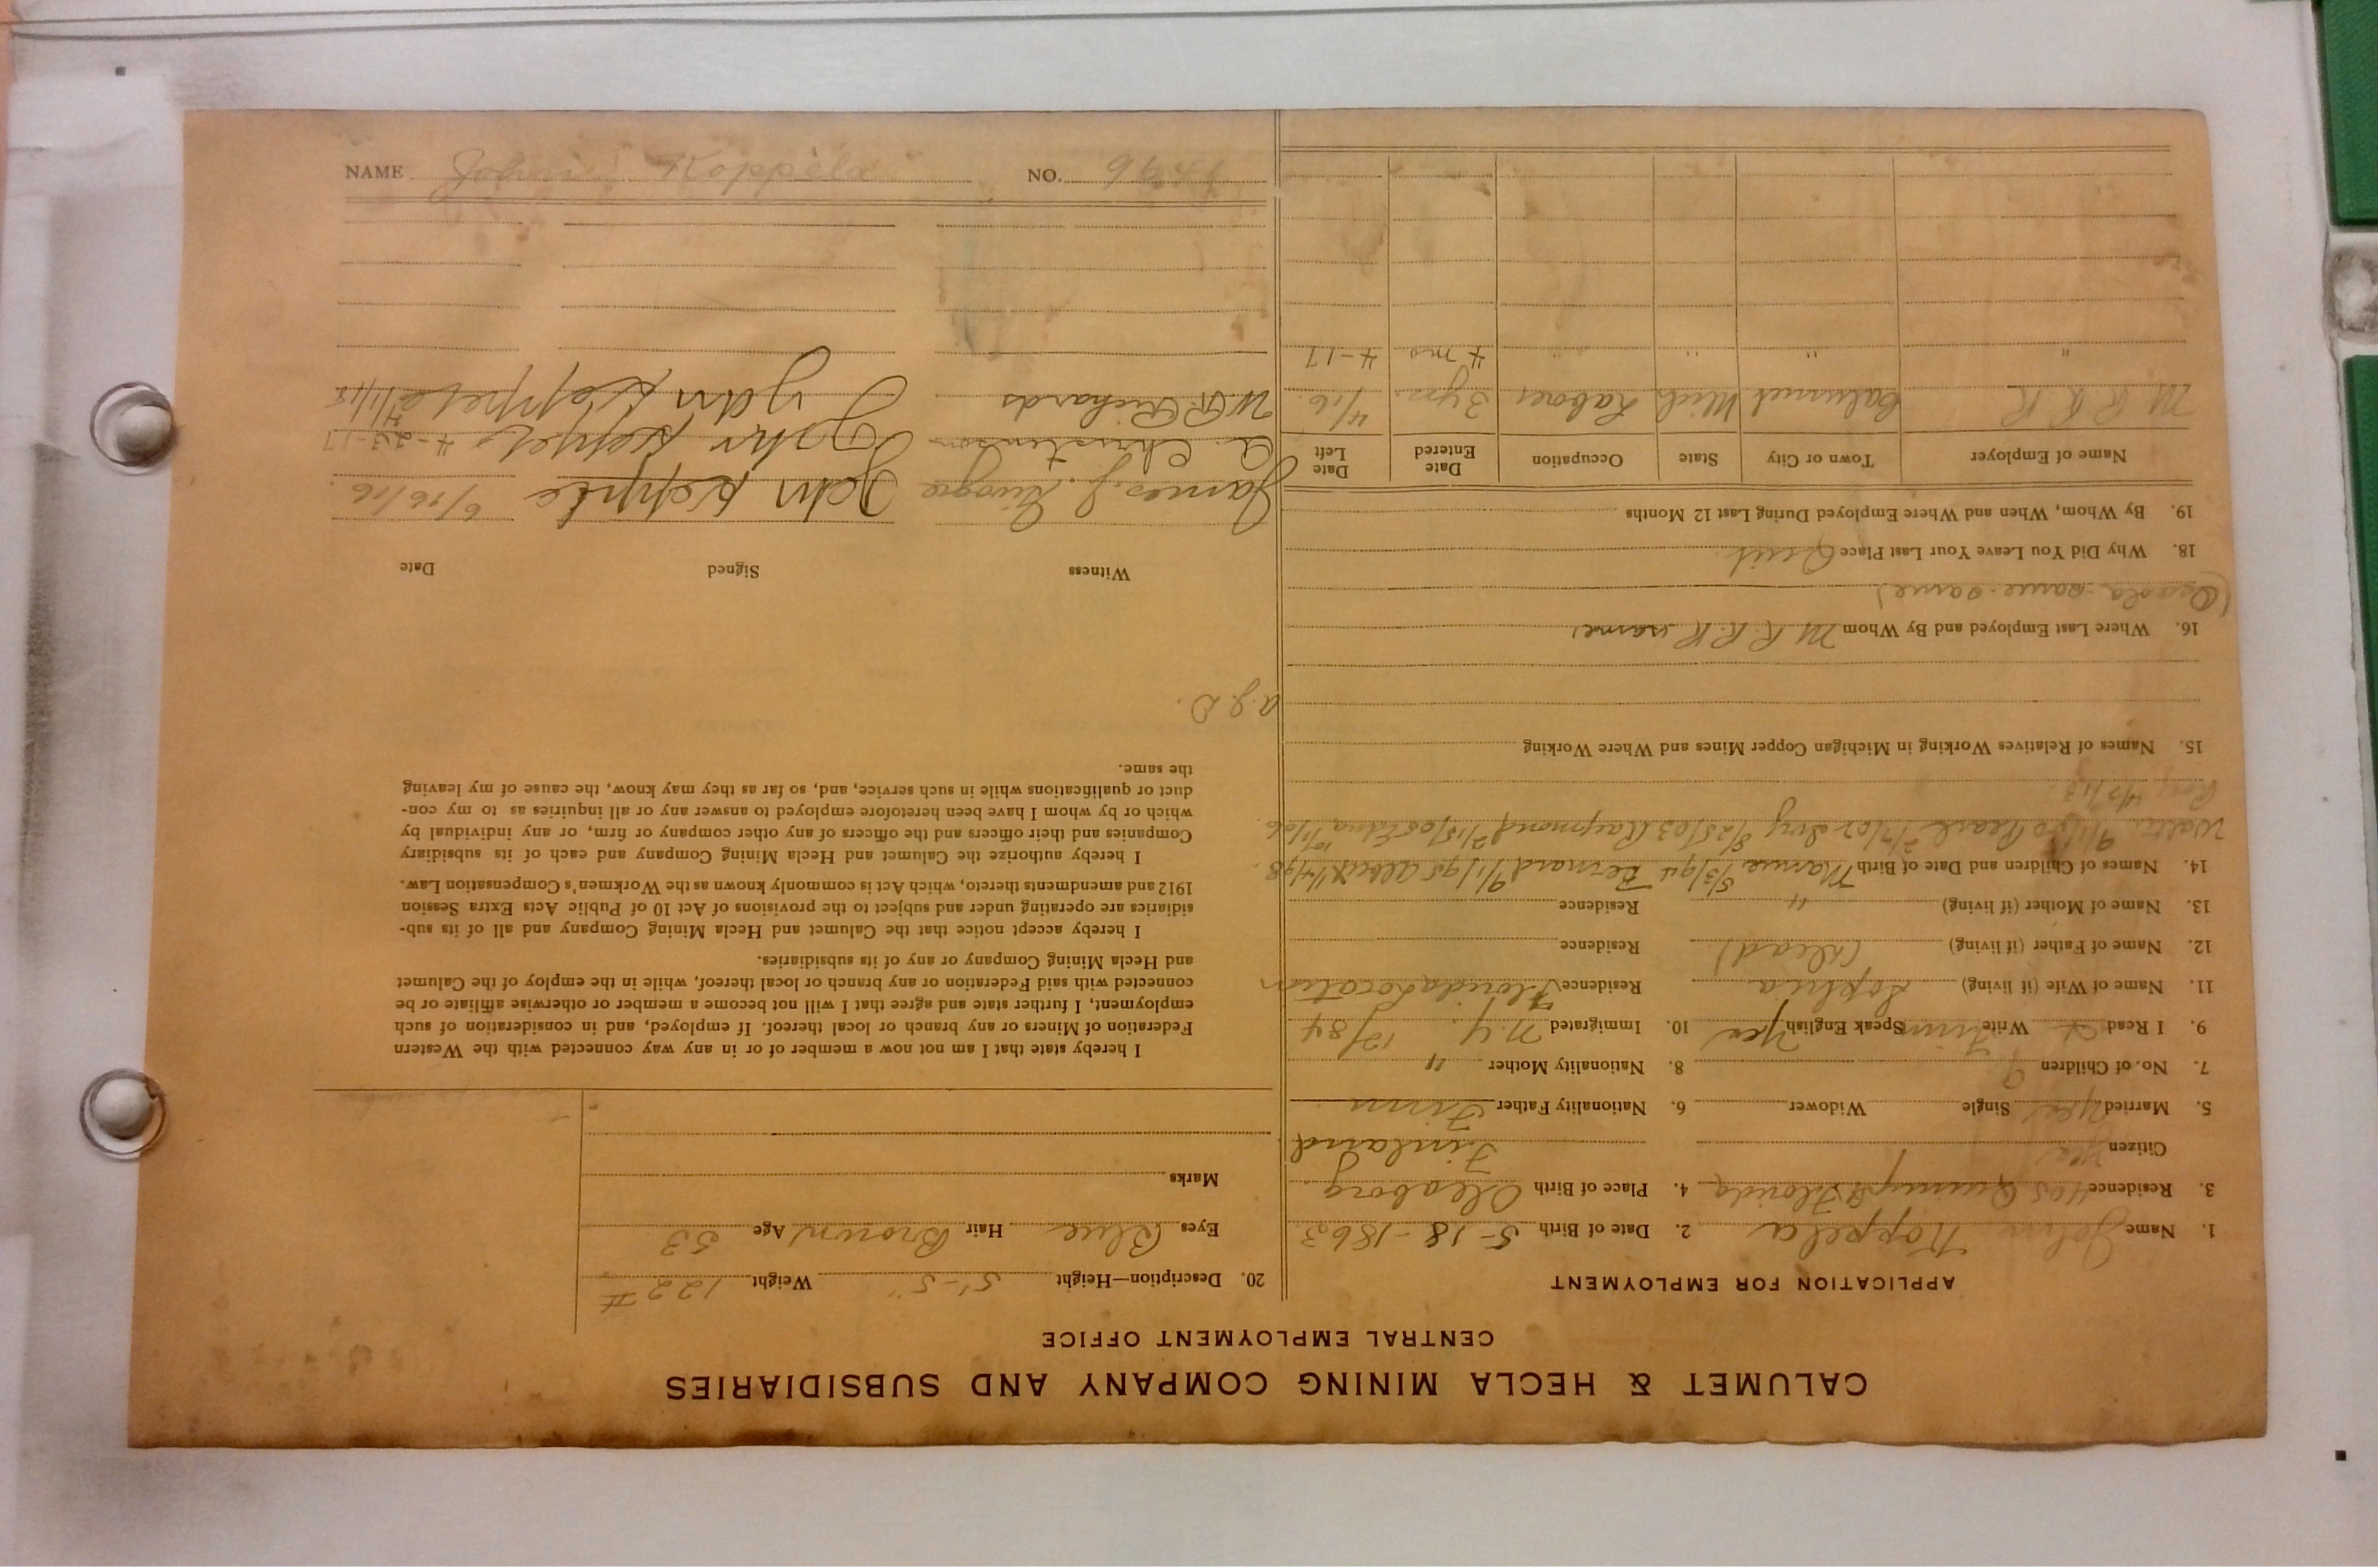 CALUMET & HECLA MINING COMPANY AND SUBSIDIARIES
CENTRAL EMPLOYMENT OFFICE
APPLICATION FOR EMPLOYMENT
1. Name John Koppela 2. Date of Birth 5-18-1863
3. Residence 4105 Quincy St Florida 4. Place of Birth Oleaborg
Citizen Yes Finland
5. Married Yes Single Widower 6. Nationality Father Finn
7. No. of Children 9 8. Nationality Mother "
9. I Read Write Finn Speak English Yes 10. Immigrated N.Y. 12/84
11. Name of Wife (if living) Sophia Residence Florida Location
12. Name of Father (if living) (Dead) Residence
13. Name of Mother (if living) " Residence
14. Names of Children and Date of Birth Mamie 5/3/94 Bernard 9/1/95 Albert 1/4/98
Walter 9/1/00 Pearl 2/7/02 Ivy 8/25/03 Raymond 2/15/05 Edna 10/1/06
Roy 4/7/13
15. Names of Relatives Working in Michigan Copper Mines and Where Working
16. Where Last Employed and By Whom M R. R. R. same
(Osceola same same)
18. Why Did You Leave Your Last Place Quit
19. By Whom, When and Where Employed During Last 12 Months
Name of Employer Town or City State Occupation Date Entered Date Left
M R R R Calumet Mich Laborer 3 yrs. 4/16
" " " " 4 mo 4-17
20. Description—Height 5'-5" Weight 122 #
Eyes Blue Hair Brown Age 53
Marks
I hereby state that I am not now a member of or in any way connected with the Western
Federation of Miners or any branch or local thereof. If employed, and in consideration of such
employment, I further state and agree that I will not become a member or otherwise affiliate or be
connected with said Federation or any branch or local thereof, while in the employ of the Calumet
and Hecla Mining Company or any of its subsidiaries.
I hereby accept notice that the Calumet and Hecla Mining Company and all of its sub-
sidiaries are operating under and subject to the provisions of Act 10 of Public Acts Extra Session
1912 and amendments thereto, which Act is commonly known as the Workmen's Compensation Law.
I hereby authorize the Calumet and Hecla Mining Company and each of its subsidiary
Companies and their officers and the officers of any other company or firm, or any individual by
which or by whom I have been heretofore employed to answer any or all inquiries as to my con-
duct or qualifications while in such service, and, so far as they may know, the cause of my leaving
the same.
a.g.D.
Witness Signed Date
James J. John Keppele 6/26/16.
A. Christenson John Keppel 4-23-17
W. R. Richards John Keppele 4/1/18
NAME John Koppela NO.